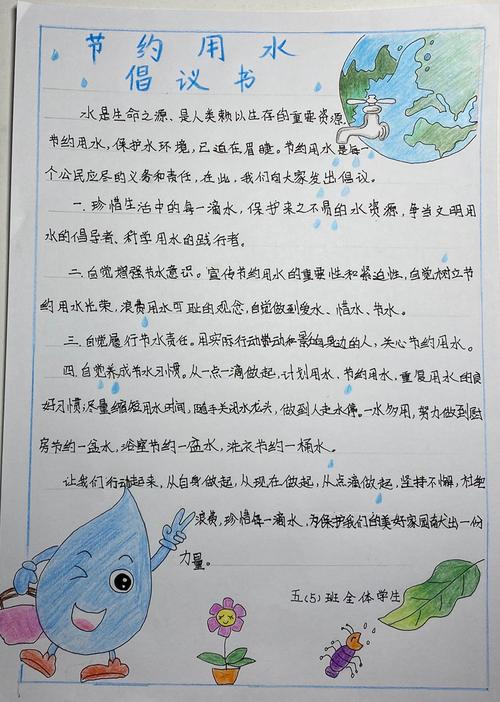 节约用水
倡议书
水是生命之源、是人类赖以生存的重要资源
节约用水，保护水环境，已迫在眉睫。节约用水是每一
个公民应尽的义务和责任，在此，我们向大家发出倡议。
一．珍惜生活中的每一滴水，保护来之不易的水资源，争当文明用
水的倡导者、科学用水的践行者。
二．自觉增强节水意识。宣传节约用水的重要性和紧迫性，自觉树立节
约用水光荣，浪费用水可耻的观念，自觉做到爱水、惜水、节水。
三．自觉履行节水责任。用实际行动带动和影响身边的人，关心节约用水。
四．自觉养成节水习惯。从一点一滴做起，计划用水、节约用水，重复用水的良
好习惯；尽量缩短用水时间，随手关闭水龙头，做到人走水停。一水多用，努力做到厨
房节约一盆水，浴室节约一盆水，洗衣节约一桶水。
让我们行动起来，从自身做起，从现在做起，从点滴做起，坚持不懈，杜绝
浪费，珍惜每一滴水，为保护我们的美好家园献出一份
力量。
五(5)班全体学生